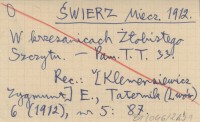 ŚWIERZ Miecz. 1912.
W krzesanicach Żłobistego
Szczytu. — Pam. T.T. 33.
Rec.: [Klemensiewicz
Zygmunt] E., Taternik (Lwów)
6 (1912), nr 5: 87